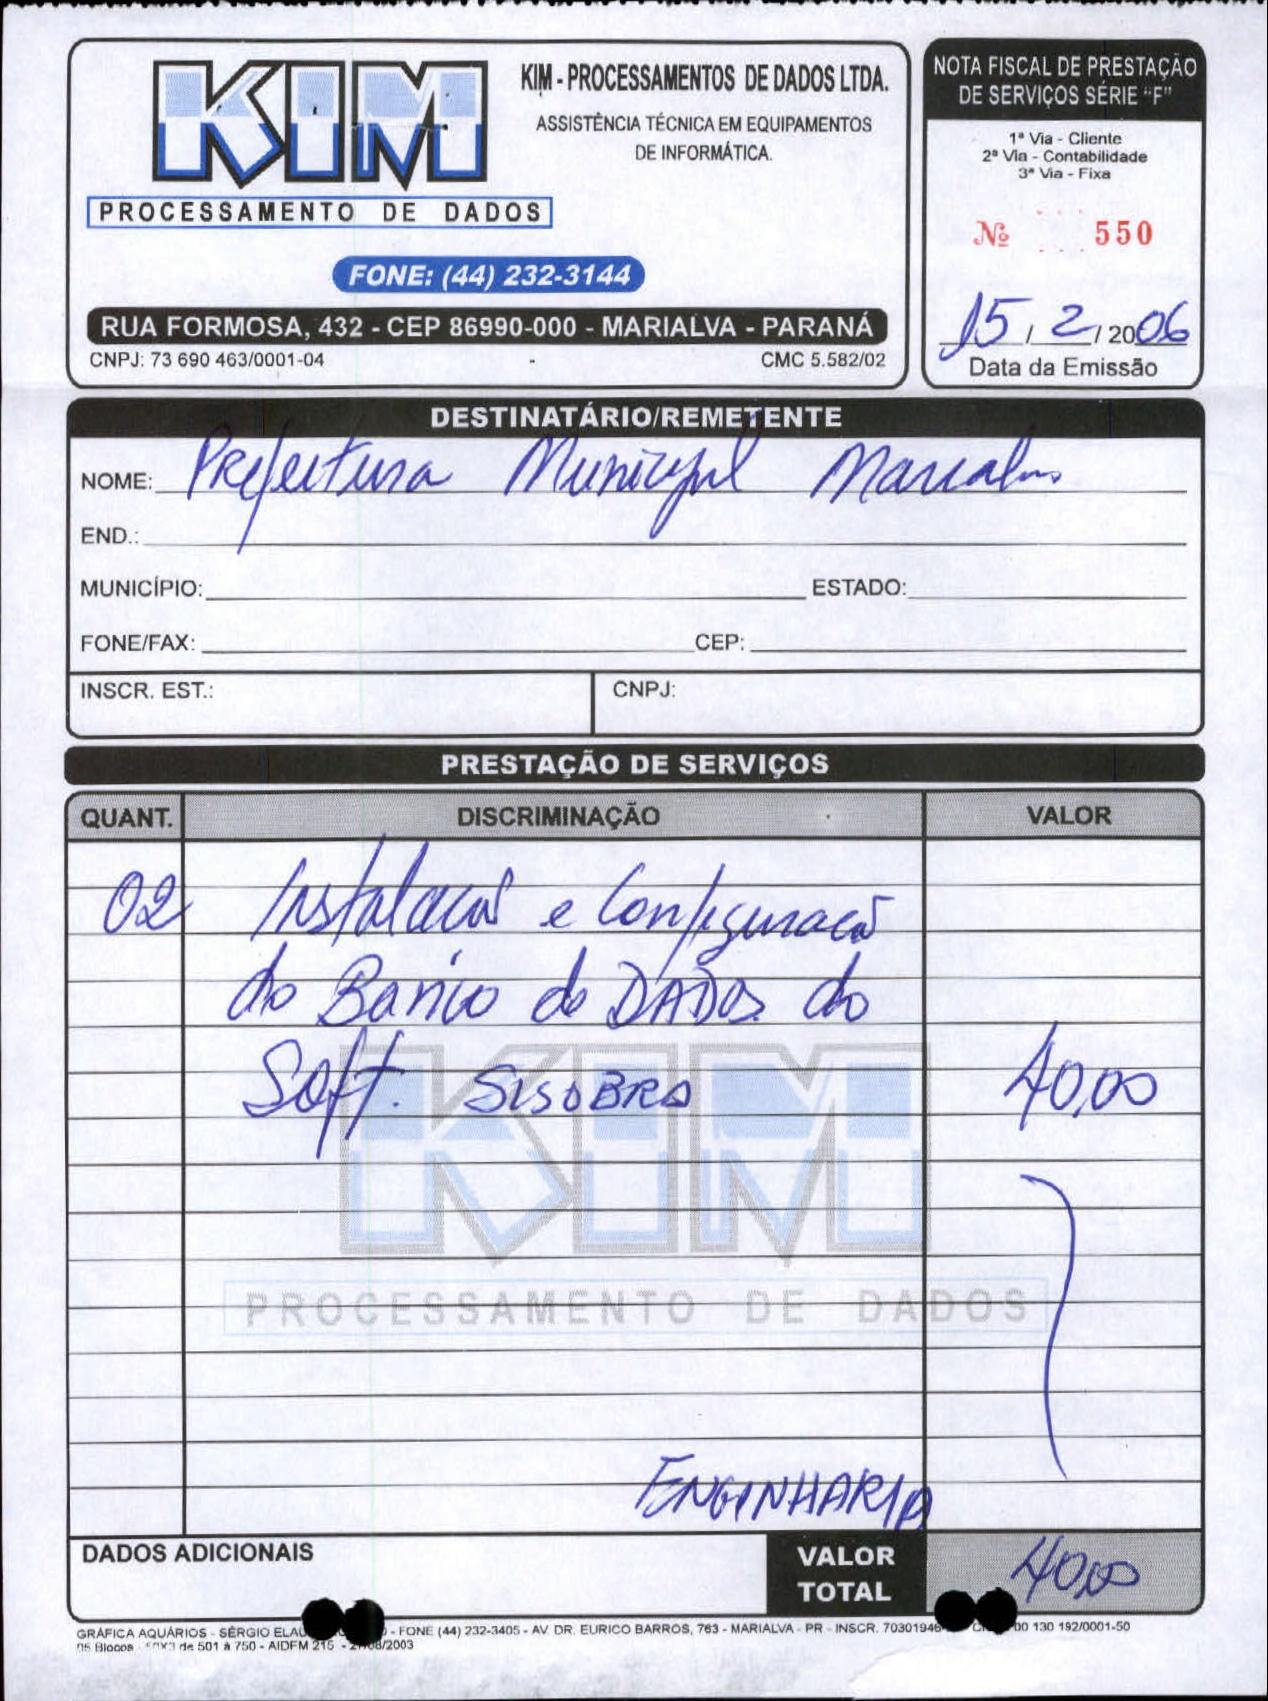 KIM
PROCESSAMENTO DE DADOS
KIM - PROCESSAMENTOS DE DADOS LTDA.
ASSISTÊNCIA TÉCNICA EM EQUIPAMENTOS
DE INFORMÁTICA.
FONE: (44) 232-3144
RUA FORMOSA, 432 - CEP 86990-000 - MARIALVA - PARANÁ
CNPJ: 73 690 463/0001-04 CMC 5.582/02
NOTA FISCAL DE PRESTAÇÃO
DE SERVIÇOS SÉRIE "F"
1ª Via - Cliente
2ª Via - Contabilidade
3ª Via - Fixa
Nº 550
15 / 2 / 2006
Data da Emissão
DESTINATÁRIO/REMETENTE
NOME: Prefeitura Municipal
END.:
MUNICÍPIO: ESTADO:
FONE/FAX: CEP:
INSCR. EST.: CNPJ:
PRESTAÇÃO DE SERVIÇOS
QUANT. DISCRIMINAÇÃO VALOR
02 Instalacaõ e Configuracaõ
do Banco de DADOS do
Soft. SISOBRA 40,00
KIM
PROCESSAMENTO DE DADOS
ENGINHARIA
DADOS ADICIONAIS
VALOR TOTAL 40,00
GRÁFICA AQUÁRIOS - SÉRGIO - FONE (44) 232-3405 - AV. DR. EURICO BARROS, 763 - MARIALVA - PR - INSCR. 00 130 192/0001-50
05 Blocos de 501 à 750 - AIDFM 215 - /2003